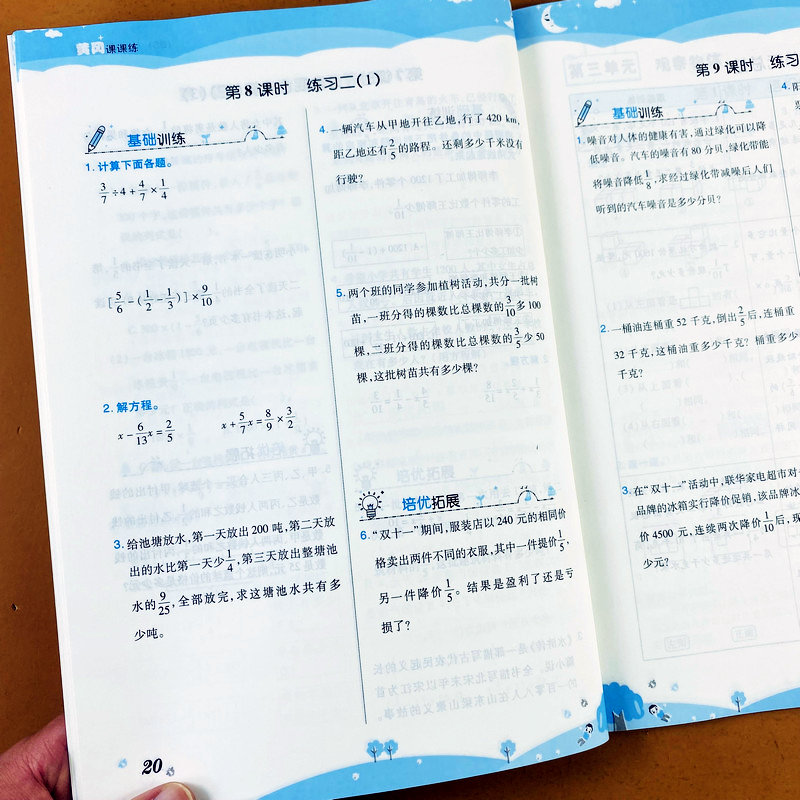 黄冈课课练
第8课时 练习二(1)
基础训练
1.计算下面各题。
3/7÷4+4/7×1/4
[5/6-(1/2-1/3)]×9/10
2.解方程。
x-6/13x=2/5 x+5/7x=8/9×3/2
3.给池塘放水,第一天放出200吨,第二天放
出的水比第一天少1/4,第三天放出整塘池
水的9/25,全部放完,求这塘池水共有多
少吨。
4.一辆汽车从甲地开往乙地,行了420 km,
距乙地还有2/5的路程。还剩多少千米没有
行驶?
5.两个班的同学参加植树活动,共分一批树
苗,一班分得的棵数比总棵数的3/10多100
棵,二班分得的棵数比总棵数的3/5少50
棵,这批树苗共有多少棵?
培优拓展
6.“双十一”期间,服装店以240元的相同价
格卖出两件不同的衣服,其中一件提价1/5,
另一件降价1/5。结果是盈利了还是亏
损了?
20
第9课时 练习
基础训练
1.噪音对人体的健康有害,通过绿化可以降
低噪音。汽车的噪音有80分贝,绿化带能
将噪音降低1/8,求经过绿化带减噪后人们
听到的汽车噪音是多少分贝?
2.一桶油连桶重52千克,倒出2/5后,连桶重
32千克,这桶油重多少千克?桶重多少
千克?
3.在“双十一”活动中,联华家电超市对
品牌的冰箱实行降价促销,该品牌冰
价4500元,连续两次降价1/10后,现
少元?
4.